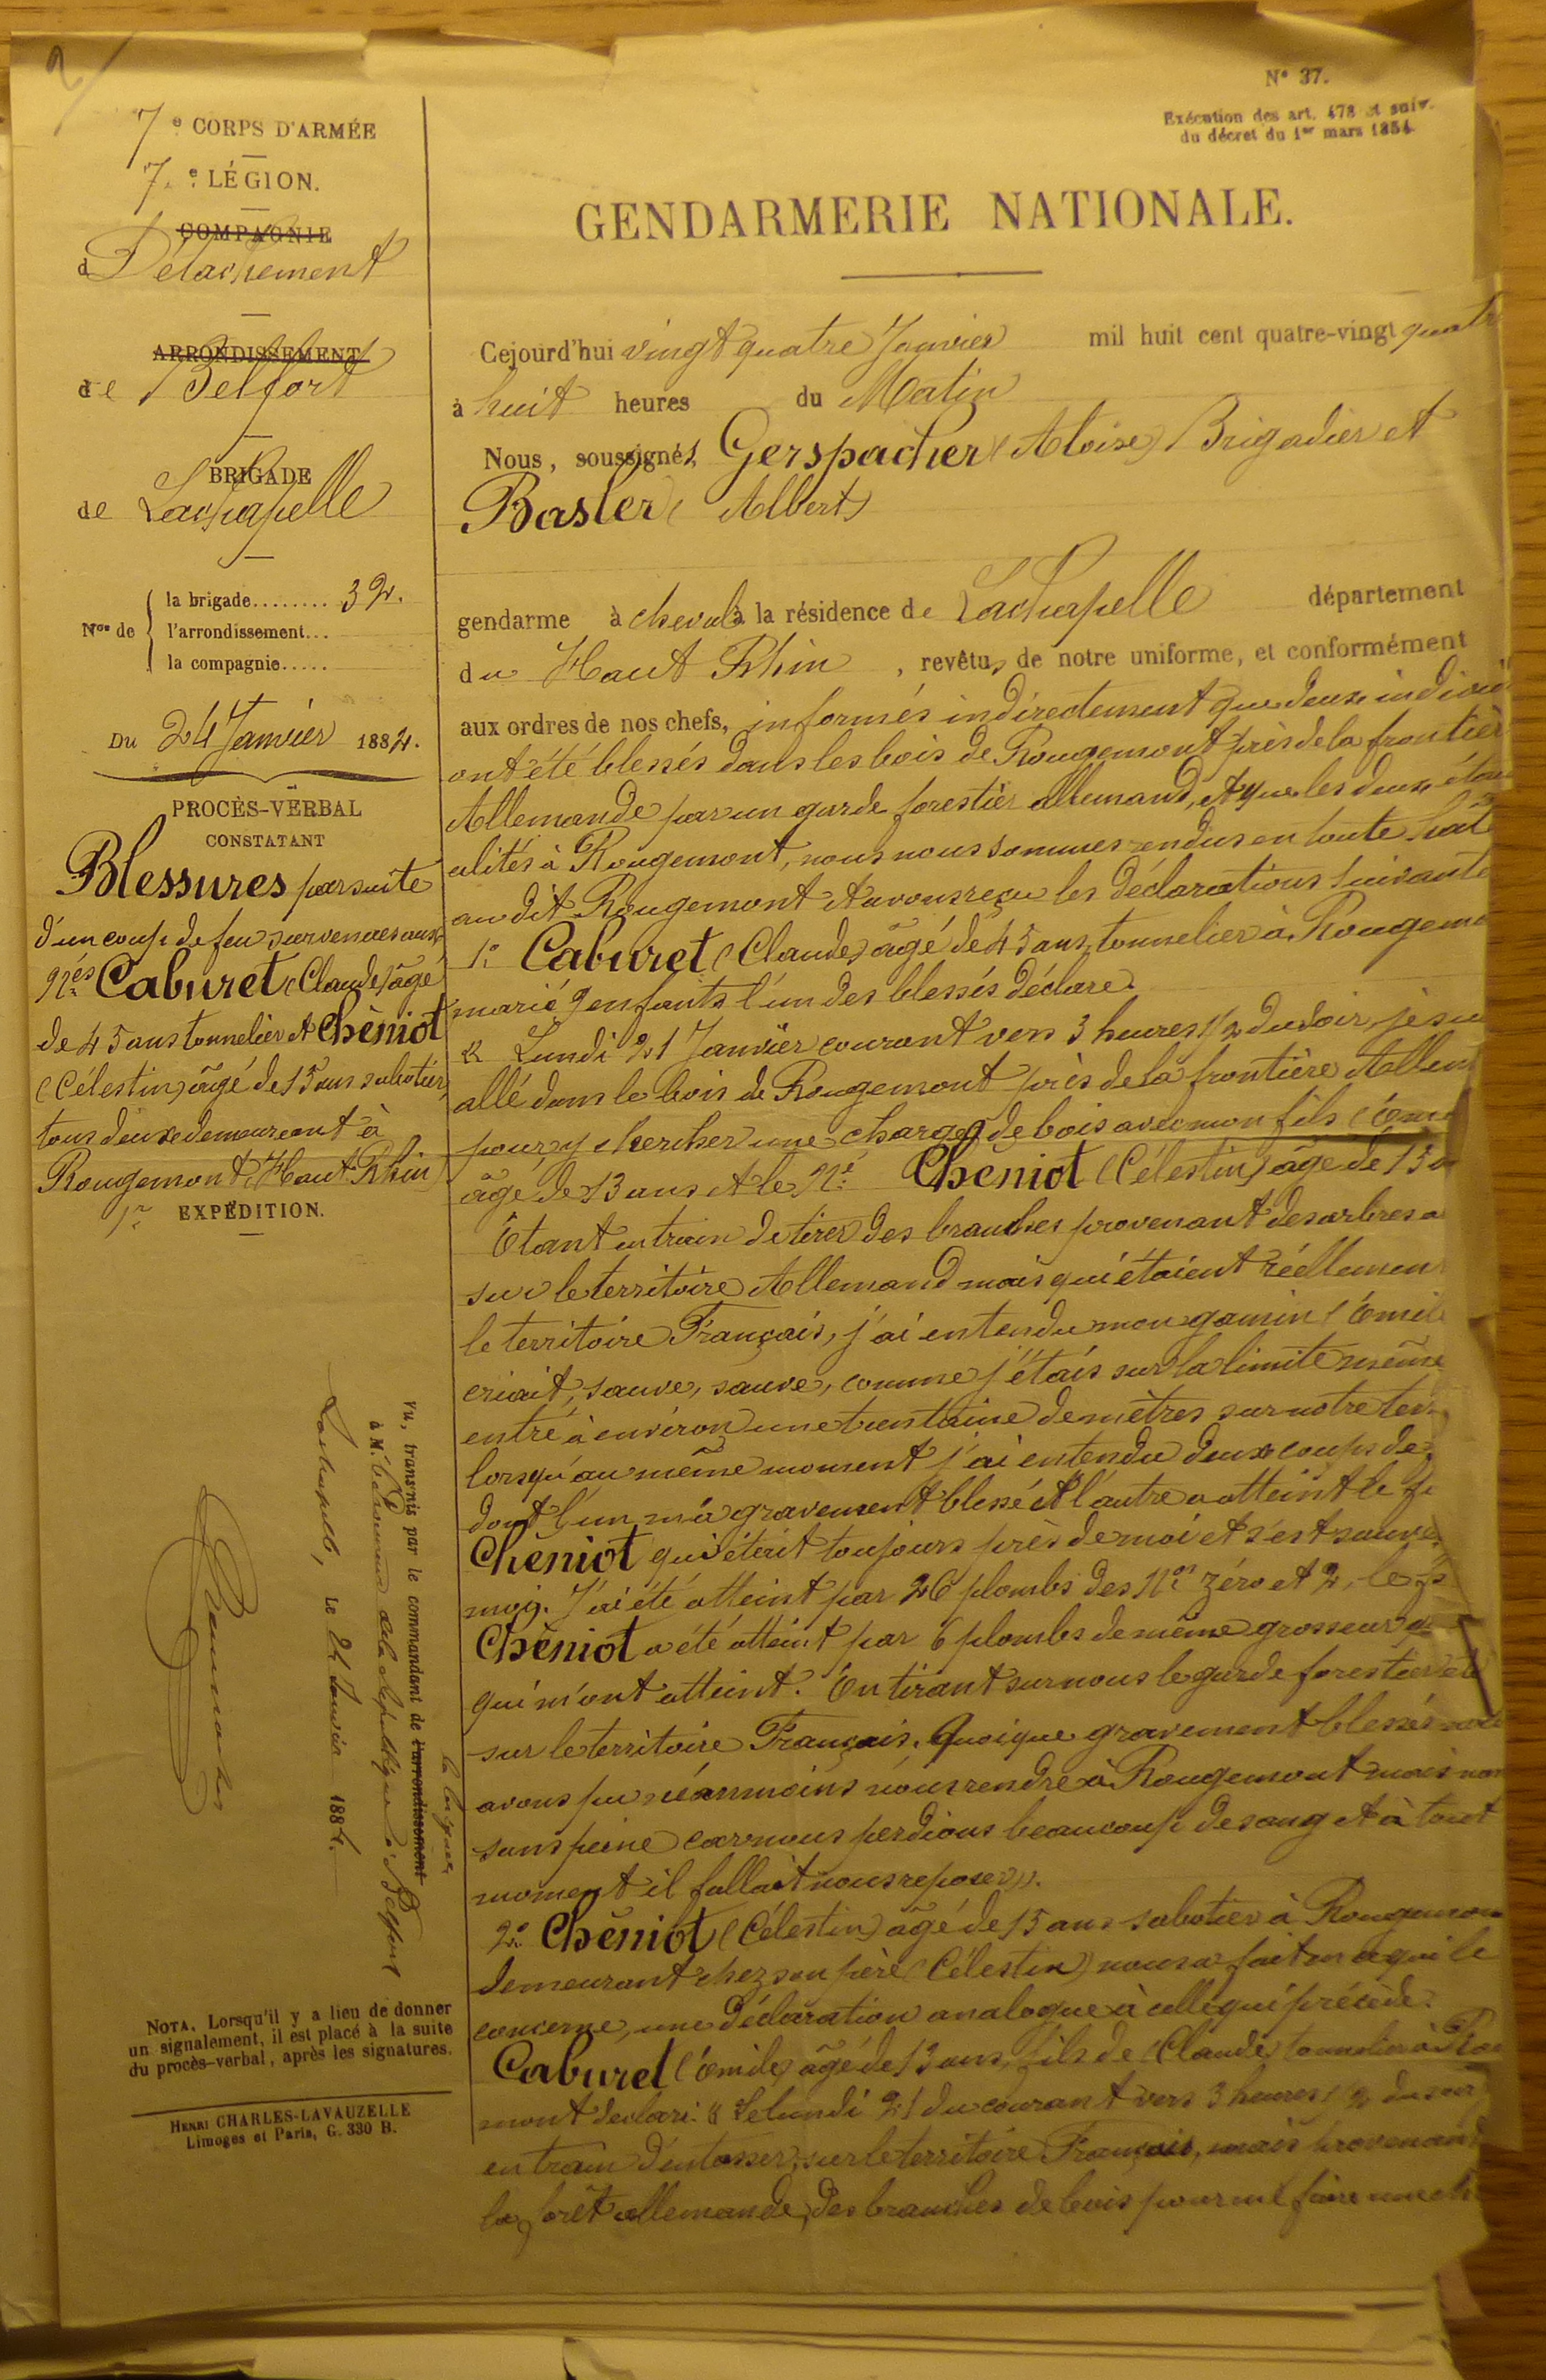 7e CORPS D'ARMÉE
7.e LÉGION.
COMPAGNIE
d Détachement
ARRONDISSEMENT
de Belfort
BRIGADE
de Lachapelle
Nos de
la brigade........ 32.
l'arrondissement...
la compagnie.....
Du 24 Janvier 1884.
PROCÈS-VERBAL
CONSTATANT
Blessures par suite
d'un coup de feu survenues aux
nés Caburet (Claude) âgé
de 45 ans tonnelier et Chèniot
(Célestin) âgé de 15 ans sabotier,
tous deux demeurant à
Rougemont (Haut-Rhin)
1re EXPÉDITION.
Vu, transmis par le commandant de l'arrondissement
à M. de la République à Belfort
Lachapelle, le 24 Janvier 1884.
NOTA. Lorsqu'il y a lieu de donner
un signalement, il est placé à la suite
du procès-verbal, après les signatures.
HENRI CHARLES-LAVAUZELLE
Limoges et Paris, G. 330 B.
N° 37.
Exécution des art. 478 et suiv.
du décret du 1er mars 1854
GENDARMERIE NATIONALE.
Cejourd'hui vingt quatre Janvier mil huit cent quatre-vingt quatr
à huit heures du Matin
Nous, soussignés, Gerspacher (Aloise) Brigadier et
Basler (Albert)
gendarme à cheval à la résidence de Lachapelle département
du Haut Rhin, revêtus de notre uniforme, et conformément
aux ordres de nos chefs, informés indirectement que deux individ
ont été blessés dans les bois de Rougemont près de la frontièr
Allemande par un garde forestier allemand, et que les deux étai
alités à Rougemont, nous nous sommes rendus en toute hâte
au dit Rougemont et avons reçu les déclarations suivante
1° Caburet (Claude) âgé de 45 ans, tonnelier à Rougemo
marié 2 enfants l'un des blessés déclare.
« Lundi 21 Janvier courant vers 3 heures 1/2 du soir, je su
allé dans le bois de Rougemont près de la frontière Allem
pour y chercher une charge de bois avec mon fils (Emi
âgé de 13 ans et le né Chèniot (Célestin) âgé de 15 a
Etant en train de tirer des branches provenant des arbres a
sur le territoire Allemand mais qui étaient réellemen
le territoire Français, j'ai entendu mon gamin (Emil
criait, sauve, sauve, comme j'étais sur la limite même
entré à environ une trentaine de mètres sur notre ter
lorsqu'au même moment j'ai entendu deux coups de
dont l'un m'a gravement blessé et l'autre a atteint le
Chèniot qui était toujours près de moi et s'est sauvé
moi. J'ai été atteint par 26 plombs des nos zéro et 2, le
Chèniot a été atteint par 6 plombs de même grosseur q
qui m'ont atteint. En tirant sur nous le garde forestier
sur le territoire Français. Quoique gravement blessés nous
avons pu néanmoins nous rendre à Rougemont mais non
sans peine car nous perdions beaucoup de sang et à tout
moment il fallait nous reposer ».
2° Chèniot (Célestin) âgé de 15 ans sabotier à Rougemon
demeurant chez son père (Célestin) nous a fait en ce qui le
concerne, une déclaration analogue à celle qui précède.
Caburet (Emile) âgé de 13 ans, fils de (Claude) tonnelier à Rou
mont déclare: « Le lundi 21 du courant vers 3 heures 1/2 du soir
en train d'entasser, sur le territoire Français, mais provenan
la forêt allemande, des branches de bois pour me faire une ch